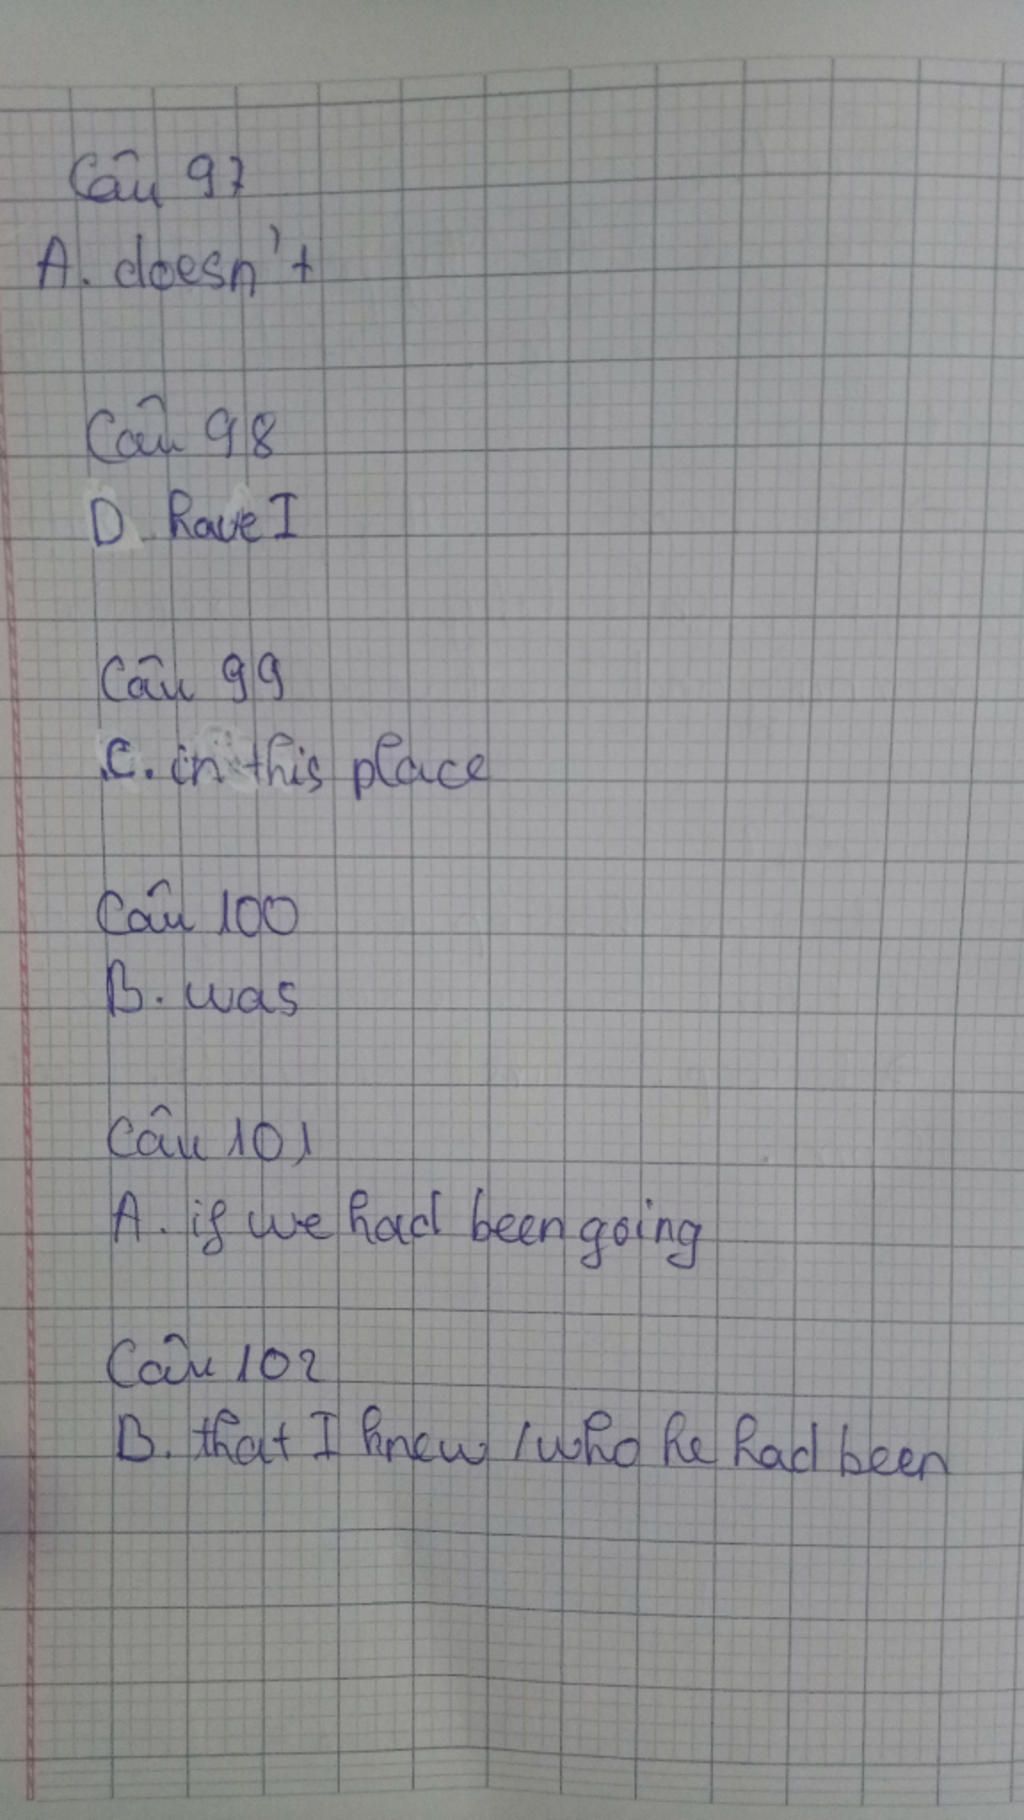 Câu 97
A. doesn't
Câu 98
D. have I
Câu 99
C. in this place
Câu 100
B. was
Câu 101
A. if we had been going
Câu 102
B. that I knew / who he had been